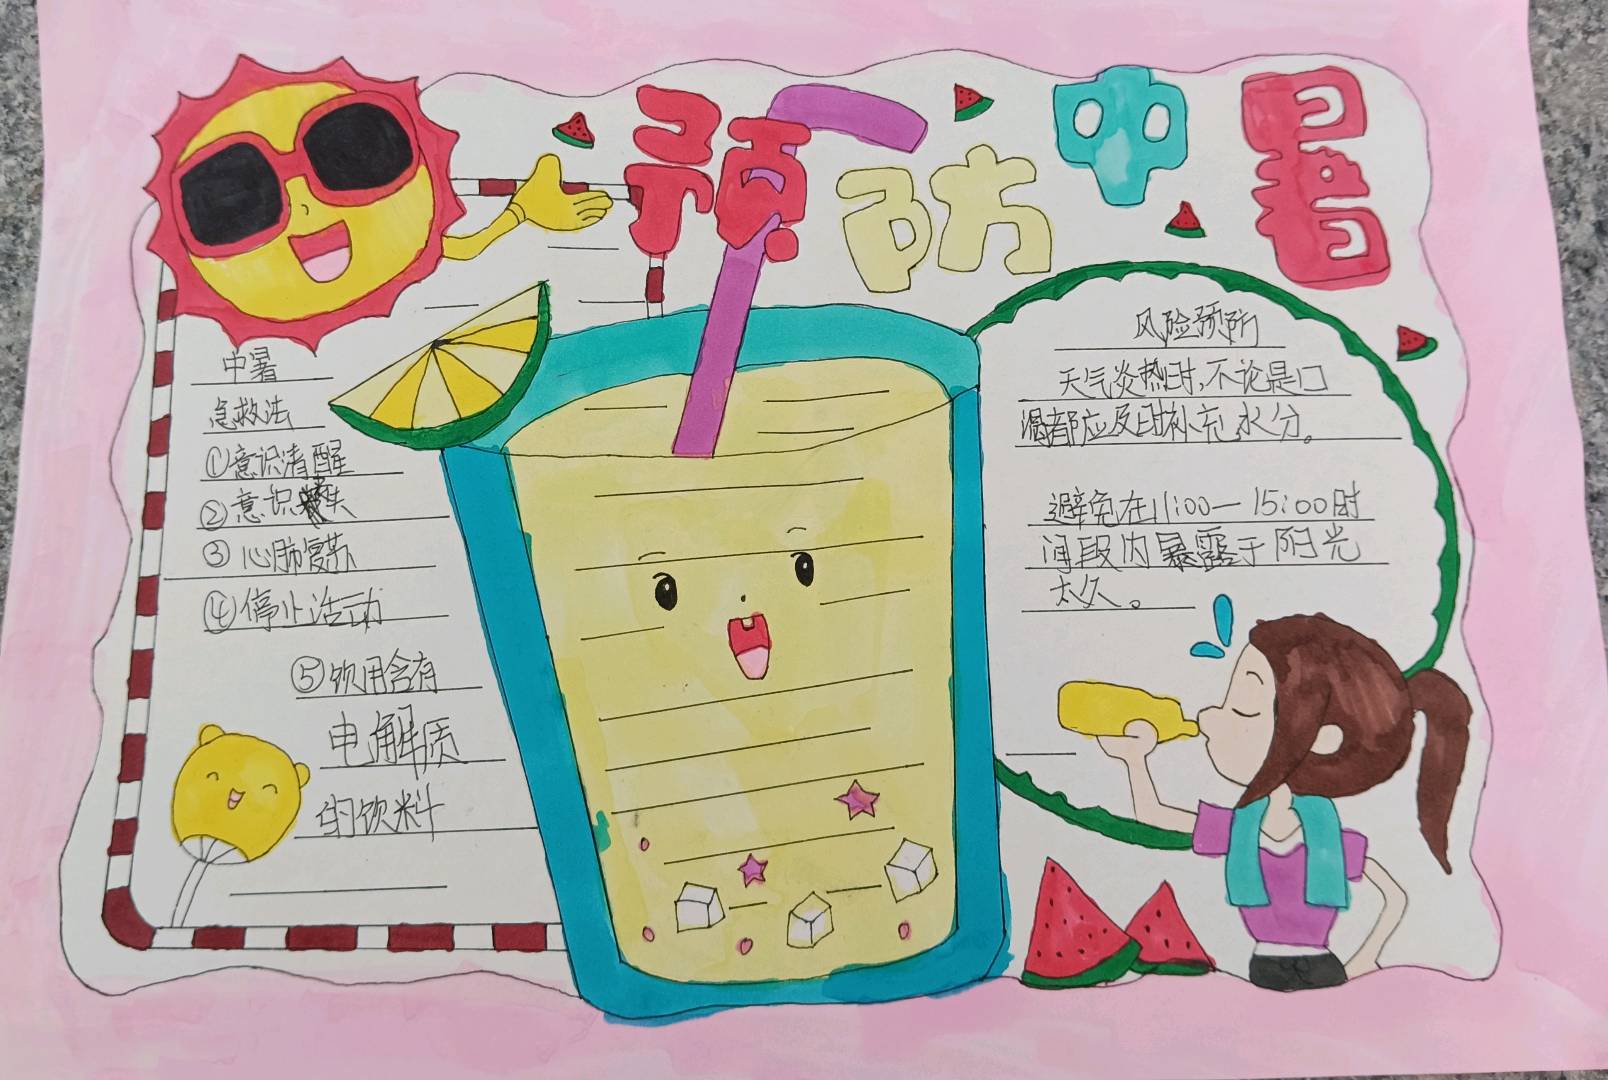 预防中暑
中暑
急救法
①意识清醒
②意识失
③心肺复苏
④停止活动
⑤饮用含有
电解质
的饮料
风险预防
天气炎热时,不论是口
渴都应及时补充水分。
避免在11:00—15:00时
间段内暴露于阳光
太久。